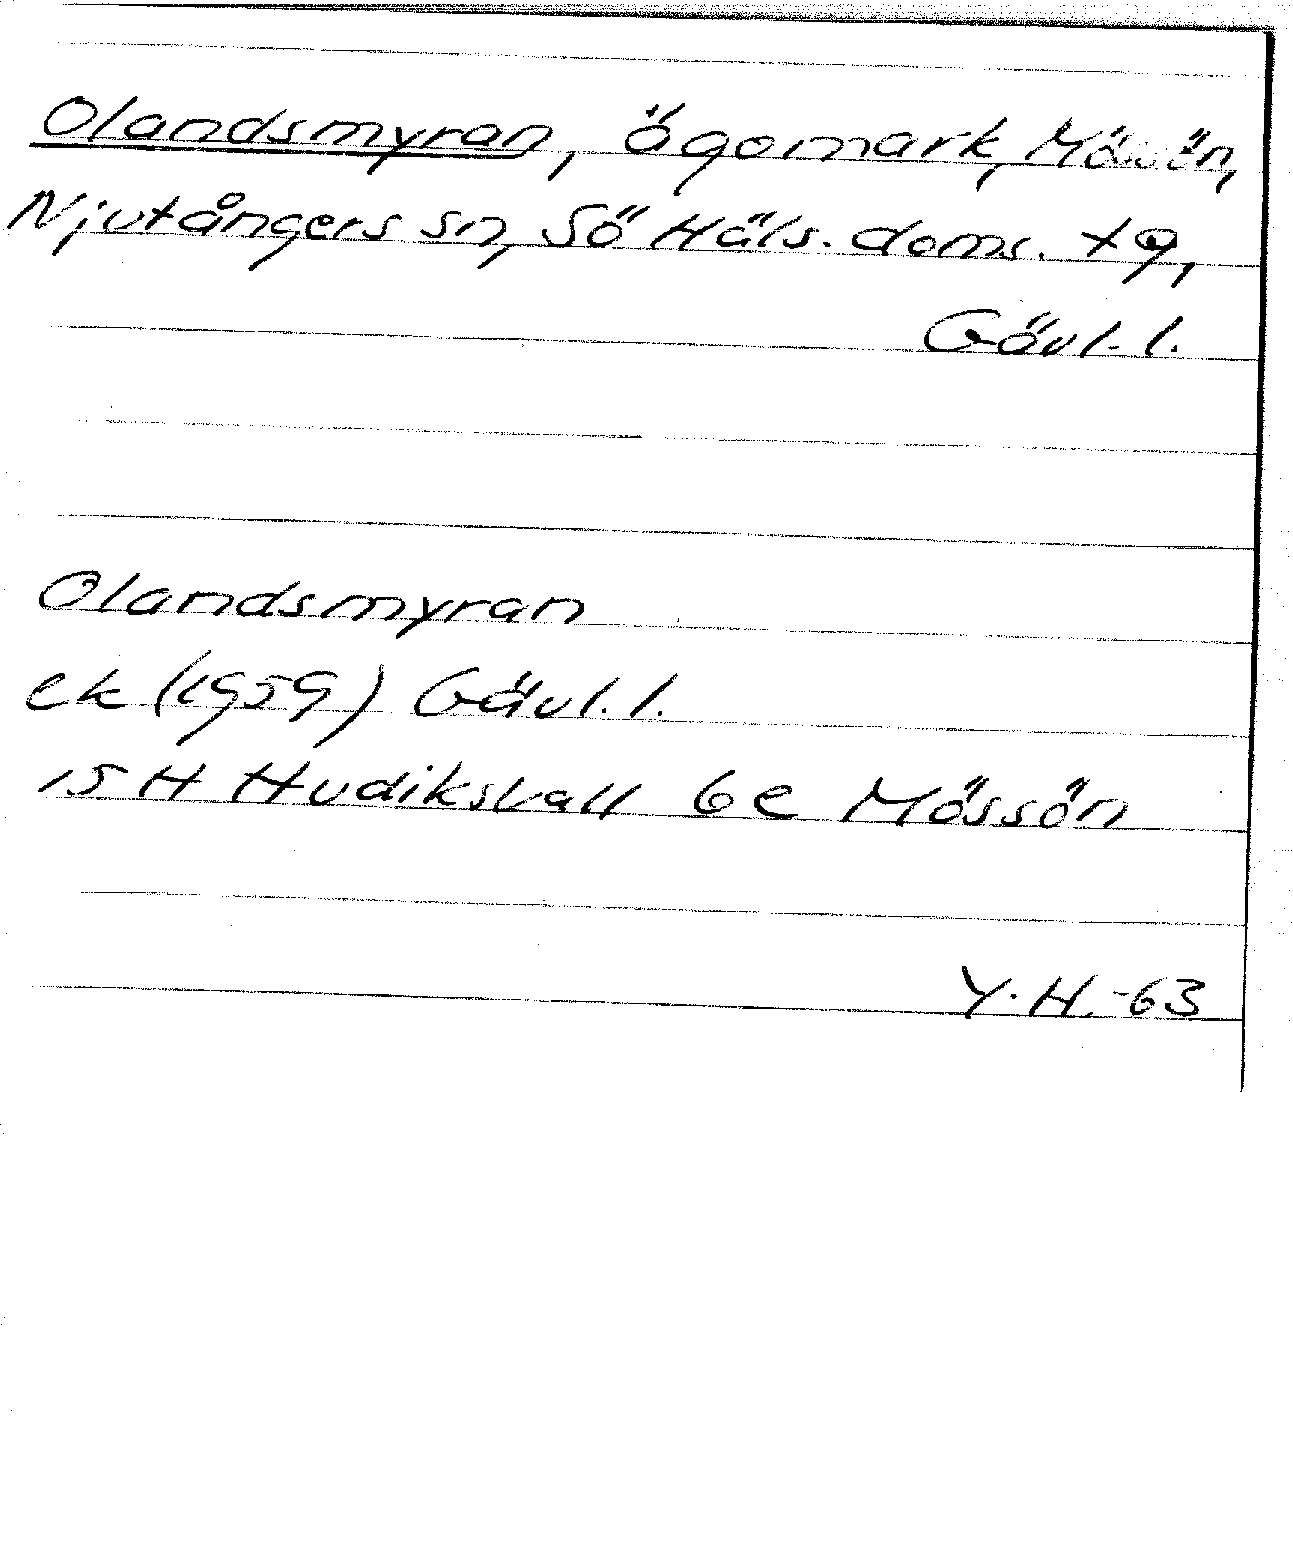 Olandsmyran, ägomark, Mössön,
Njutångers sn, Sö Häls. doms. tg,
Gävl. l.
Olandsmyran
ek (1959) Gävl. l.
15 H Hudiksvall 6e Mössön
Y. H. -63